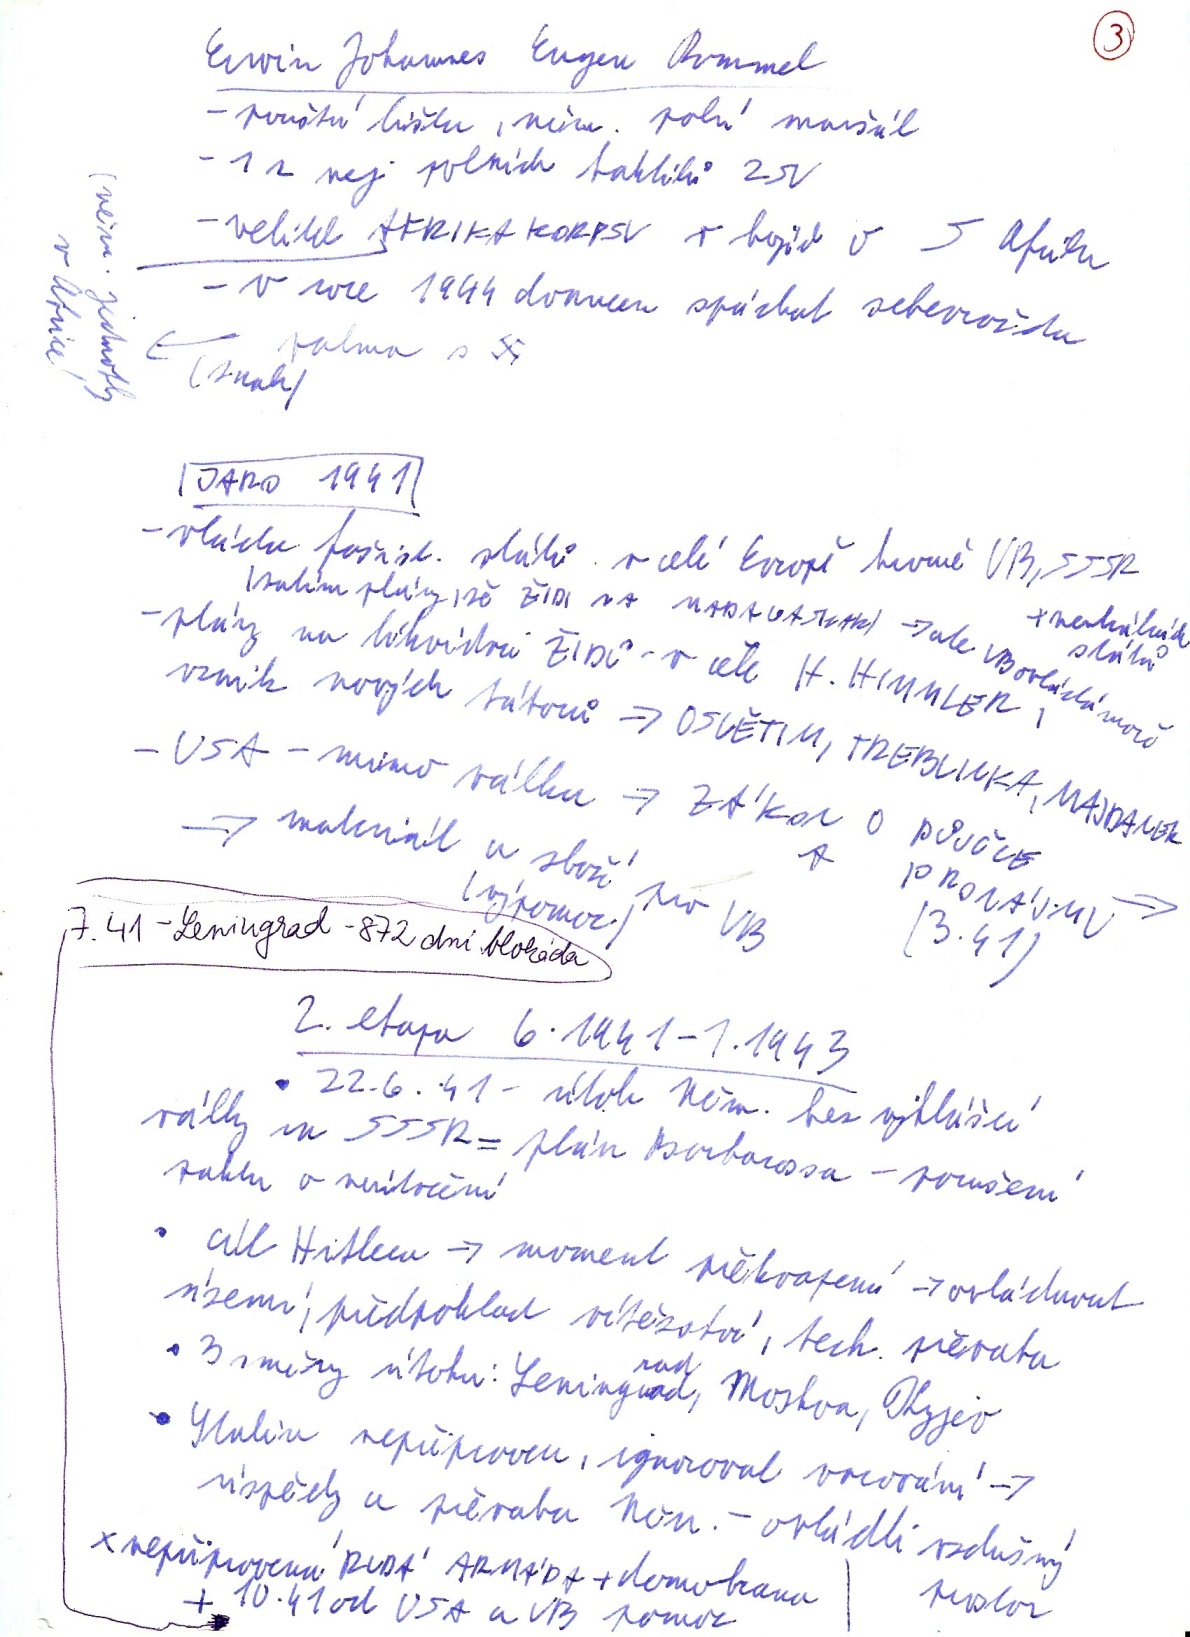 3
Erwin Johannes Eugen Rommel
- pouštní liška, něm. polní maršál
- 1 z nej polních taktiků 2SV
- velitel AFRIKAKORPSU v bojích v S Africe
(něm. jednotky
v Africe)
- v roce 1944 donucen spáchat sebevraždu
palma s 卐
(znak)
JARO 1941
- vláda fašist. států v celé Evropě kromě VB, SSSR
+ neutrálních
států
(zatím plány, že ŽIDI NA MADAGASKAR) → ale VB ovládá moře
- plány na likvidaci ŽIDŮ - v čele H. HIMMLER,
vznik nových táborů → OSVĚTIM, TREBLINKA, MAJDANEK
- USA - mimo válku → ZÁKON O PŮJČCE
A PRONÁJMU →
(3.41)
→ materiál a zboží pro VB
(výpomoc)
7.41 - Leningrad - 872 dní blokáda
2. etapa 6.1941 - 1.1943
• 22.6.41 - útok Něm. bez vyhlášení
války na SSSR = plán Barbarossa - porušení
paktu o neútočení
• cíl Hitlera → moment překvapení → ovládnout
území, předpoklad vítězství, tech. převaha
• 3 směry útoku: Leningrad, Moskva, Kyjev
rad
• Stalin nepřipraven, ignoroval varování →
úspěchy a převaha Něm. - ovládli vzdušný
prostor
x nepřipravená RUDÁ ARMÁDA + domobrana
+ 10.41 od USA a VB pomoc